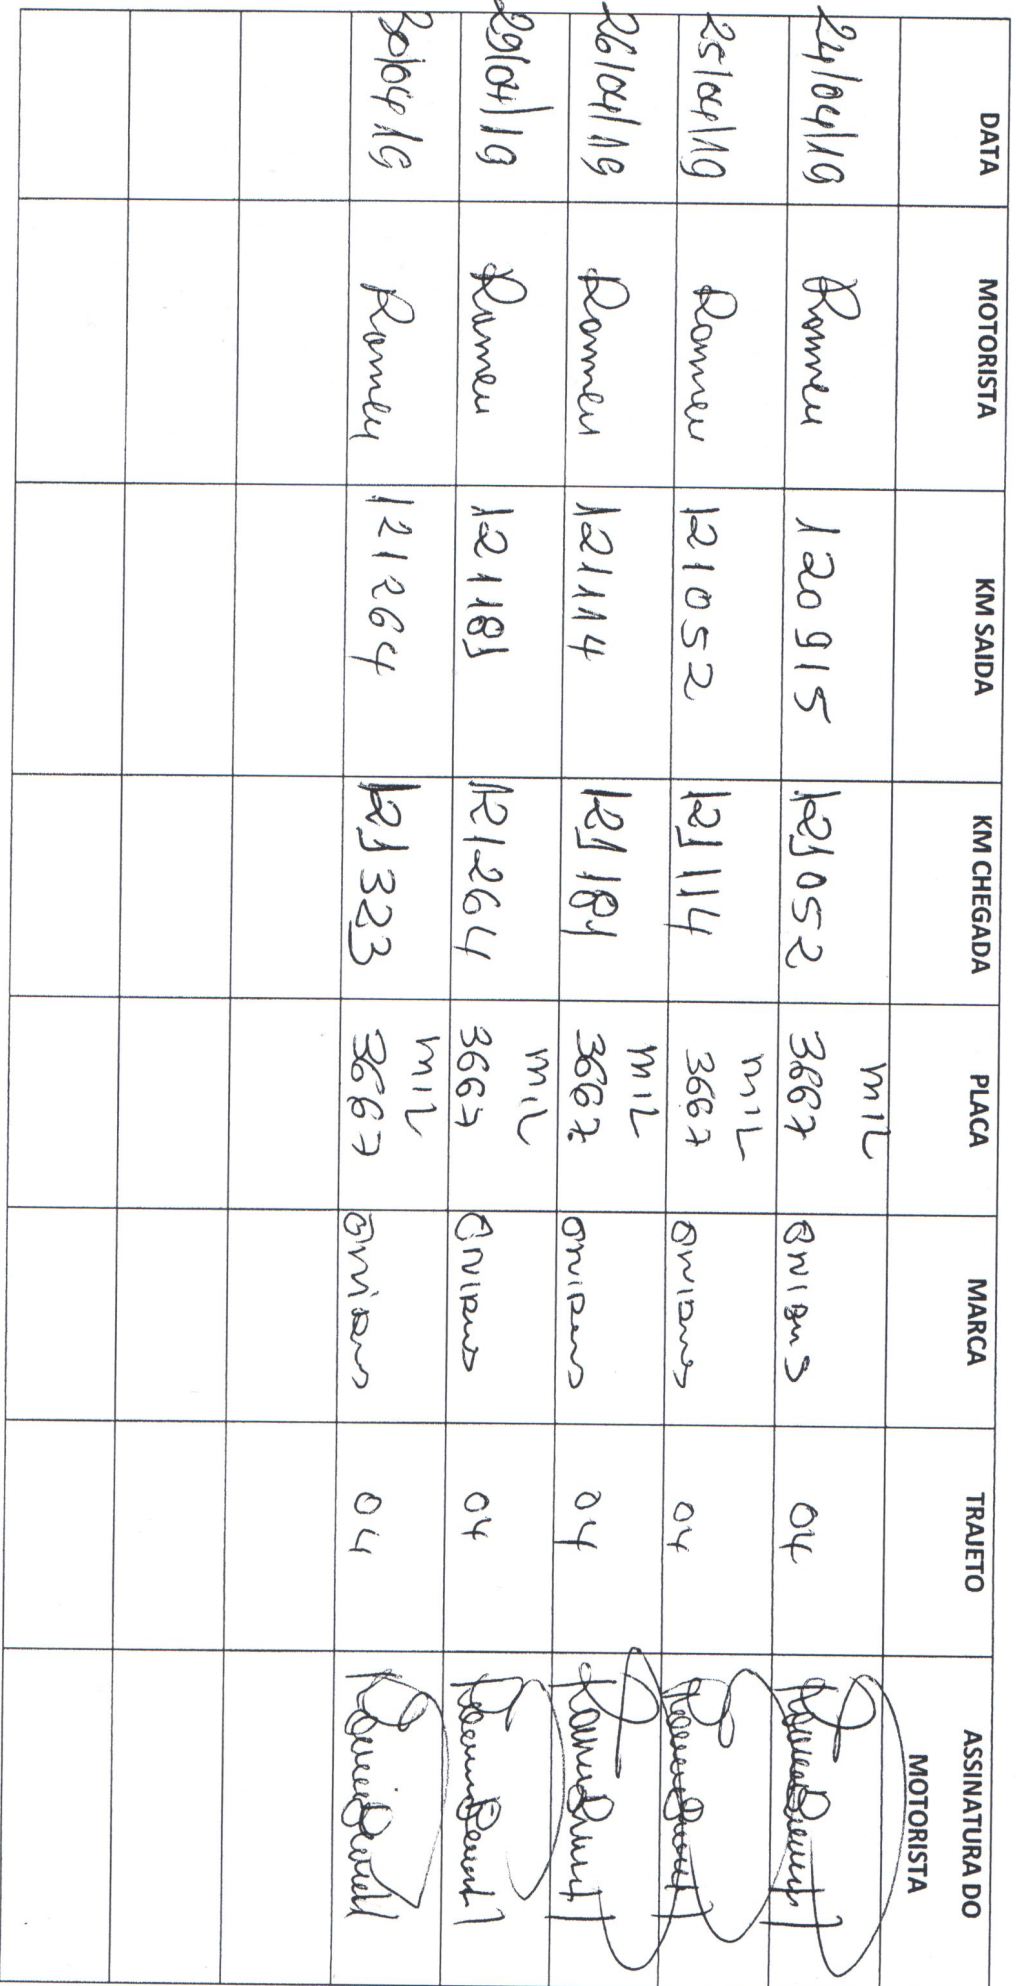 DATA MOTORISTA KM SAIDA KM CHEGADA PLACA MARCA TRAJETO ASSINATURA DO MOTORISTA
24/04/19 Romeu 120915 121052 MIL 3667 ONIBUS 04
25/04/19 Romeu 121052 121114 MIL 3667 ONIBUS 04
26/04/19 Romeu 121114 121181 MIL 3667 ONIBUS 04
29/04/19 Romeu 121181 121264 MIL 3667 ONIBUS 04
30/04/19 Romeu 121264 121323 MIL 3667 ONIBUS 04